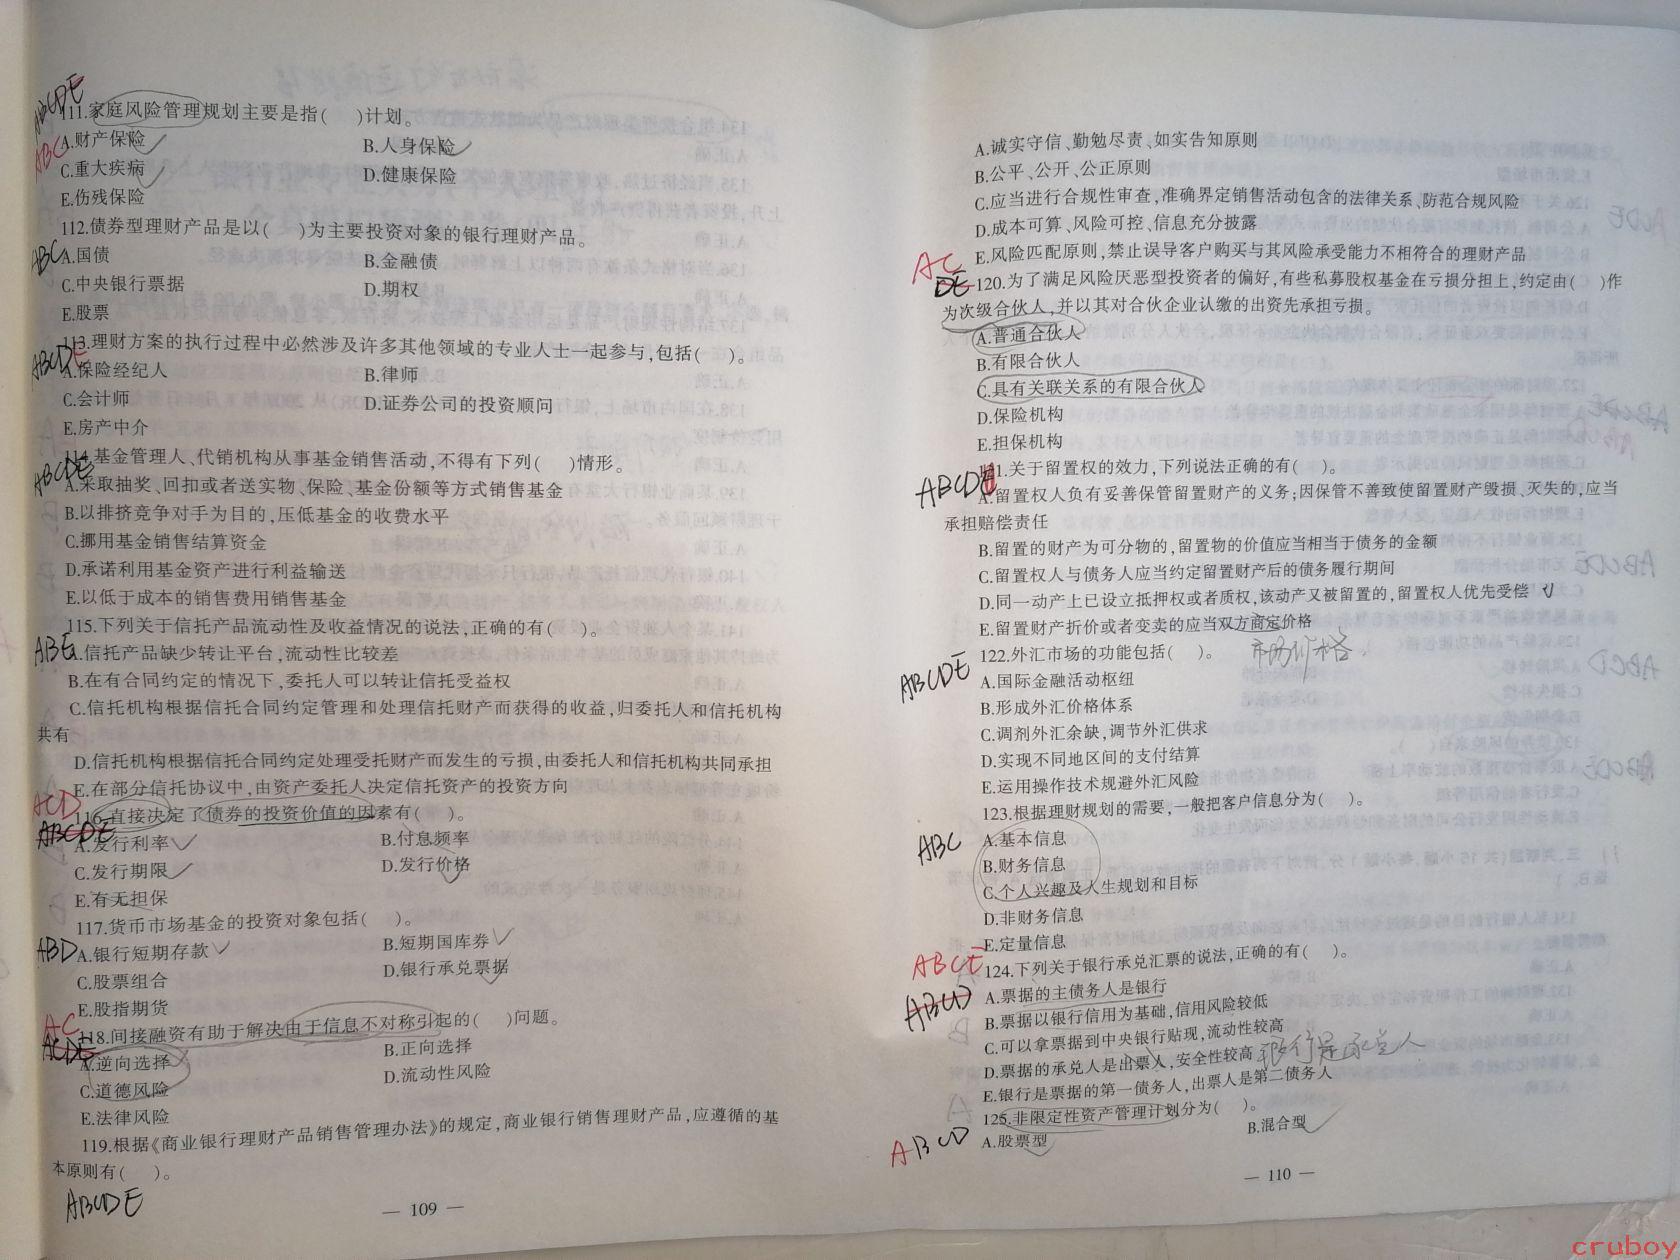 ABCDE
111.家庭风险管理规划主要是指(  )计划。
ABC
A.财产保险
B.人身保险
C.重大疾病
D.健康保险
E.伤残保险
112.债券型理财产品是以(  )为主要投资对象的银行理财产品。
ABC
A.国债
B.金融债
C.中央银行票据
D.期权
E.股票
113.理财方案的执行过程中必然涉及许多其他领域的专业人士一起参与,包括(  )。
ABCDE
A.保险经纪人
B.律师
C.会计师
D.证券公司的投资顾问
E.房产中介
114.基金管理人、代销机构从事基金销售活动,不得有下列(  )情形。
ABCDE
A.采取抽奖、回扣或者送实物、保险、基金份额等方式销售基金
B.以排挤竞争对手为目的,压低基金的收费水平
C.挪用基金销售结算资金
D.承诺利用基金资产进行利益输送
E.以低于成本的销售费用销售基金
115.下列关于信托产品流动性及收益情况的说法,正确的有(  )。
ABE
A.信托产品缺少转让平台,流动性比较差
B.在有合同约定的情况下,委托人可以转让信托受益权
C.信托机构根据信托合同约定管理和处理信托财产而获得的收益,归委托人和信托机构
共有
D.信托机构根据信托合同约定处理受托财产而发生的亏损,由委托人和信托机构共同承担
E.在部分信托协议中,由资产委托人决定信托资产的投资方向
ACD
116.直接决定了债券的投资价值的因素有(  )。
ABCDE
A.发行利率
B.付息频率
C.发行期限
D.发行价格
E.有无担保
117.货币市场基金的投资对象包括(  )。
ABD
A.银行短期存款
B.短期国库券
C.股票组合
D.银行承兑票据
E.股指期货
AC
118.间接融资有助于解决由于信息不对称引起的(  )问题。
ACDE
A.逆向选择
B.正向选择
C.道德风险
D.流动性风险
E.法律风险
119.根据《商业银行理财产品销售管理办法》的规定,商业银行销售理财产品,应遵循的基
本原则有(  )。
ABCDE
— 109 —
A.诚实守信、勤勉尽责、如实告知原则
B.公平、公开、公正原则
C.应当进行合规性审查,准确界定销售活动包含的法律关系、防范合规风险
D.成本可算、风险可控、信息充分披露
E.风险匹配原则,禁止误导客户购买与其风险承受能力不相符合的理财产品
AC
DE
120.为了满足风险厌恶型投资者的偏好,有些私募股权基金在亏损分担上,约定由(  )作
为次级合伙人,并以其对合伙企业认缴的出资先承担亏损。
A.普通合伙人
B.有限合伙人
C.具有关联关系的有限合伙人
D.保险机构
E.担保机构
121.关于留置权的效力,下列说法正确的有(  )。
ABCD
A.留置权人负有妥善保管留置财产的义务;因保管不善致使留置财产毁损、灭失的,应当
承担赔偿责任
B.留置的财产为可分物的,留置物的价值应当相当于债务的金额
C.留置权人与债务人应当约定留置财产后的债务履行期间
D.同一动产上已设立抵押权或者质权,该动产又被留置的,留置权人优先受偿
E.留置财产折价或者变卖的应当双方商定价格
122.外汇市场的功能包括(  )。
市场价格.
ABCDE
A.国际金融活动枢纽
B.形成外汇价格体系
C.调剂外汇余缺,调节外汇供求
D.实现不同地区间的支付结算
E.运用操作技术规避外汇风险
123.根据理财规划的需要,一般把客户信息分为(  )。
ABC
A.基本信息
B.财务信息
C.个人兴趣及人生规划和目标
D.非财务信息
E.定量信息
ABCE
124.下列关于银行承兑汇票的说法,正确的有(  )。
ABCD
A.票据的主债务人是银行
B.票据以银行信用为基础,信用风险较低
C.可以拿票据到中央银行贴现,流动性较高
D.票据的承兑人是出票人,安全性较高
银行是承兑人
E.银行是票据的第一债务人,出票人是第二债务人
125.非限定性资产管理计划分为(  )。
ABCD
A.股票型
B.混合型
— 110 —
cruboy